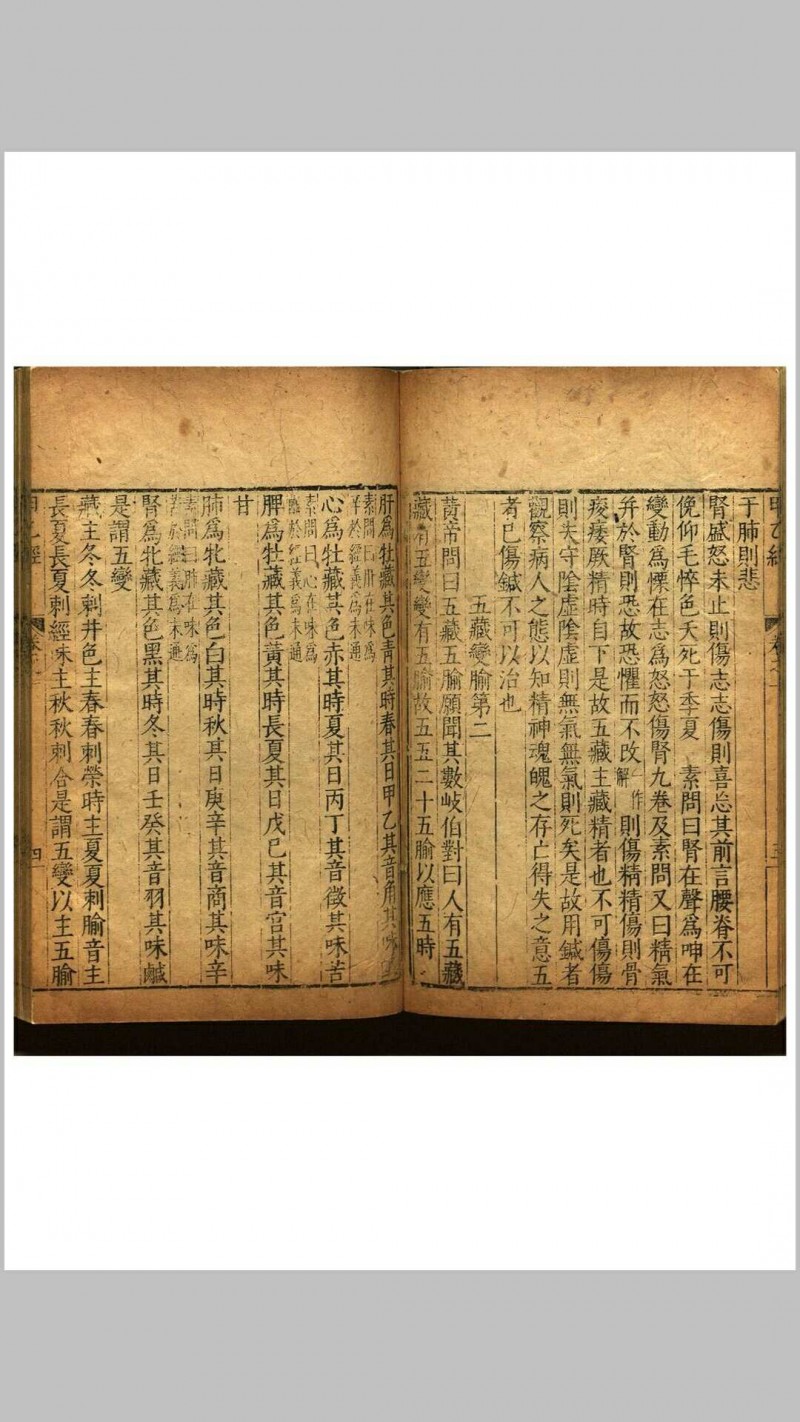 甲乙經
卷之一
三
于肺則悲
腎盛怒未止則傷志志傷則喜忘其前言腰脊不可
俛仰毛悴色夭死于季夏 素問曰腎在聲爲呻在
變動爲慄在志爲怒怒傷腎九卷及素問又曰精氣
并於腎則恐故恐懼而不改一作解則傷精精傷則骨
痠痿厥精時自下是故五藏主藏精者也不可傷傷
則失守陰虛陰虛則無氣無氣則死矣是故用鍼者
觀察病人之態以知精神魂魄之存亡得失之意五
者已傷鍼不可以治也
五藏變腧第二
黃帝問曰五藏五腧願聞其數岐伯對曰人有五藏
藏有五變變有五腧故五五二十五腧以應五時
肝爲牡藏其色青其時春其日甲乙其音角其味
素問曰肝在味爲
於經義爲未通
心爲牡藏其色赤其時夏其日丙丁其音徵其味苦
素問曰心在味爲
於經義爲未通
脾爲牡藏其色黃其時長夏其日戊巳其音宮其味
甘
肺爲牝藏其色白其時秋其日庚辛其音商其味辛
素問曰肺在味爲
苦於經義爲未通
腎爲牝藏其色黑其時冬其日壬癸其音羽其味鹹
是謂五變
藏主冬冬刺井色主春春刺滎時主夏夏刺腧音主
長夏長夏刺經味主秋秋刺合是謂五變以主五腧
甲乙經
卷之一
四